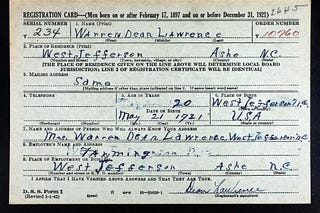 2645
REGISTRATION CARD—(Men born on or after February 17, 1897 and on or before December 31, 1921)
SERIAL NUMBER 1. NAME (Print) ORDER NUMBER
234 Warren Dean Lawrence 10760
2. PLACE OF RESIDENCE (Print)
West Jefferson Ashe N.C.
(Number and street) (Town, township, village, or city) (County) (State)
[THE PLACE OF RESIDENCE GIVEN ON THE LINE ABOVE WILL DETERMINE LOCAL BOARD
JURISDICTION; LINE 2 OF REGISTRATION CERTIFICATE WILL BE IDENTICAL]
3. MAILING ADDRESS
Same
[Mailing address if other than place indicated on line 2. If same insert word same]
4. TELEPHONE 5. AGE IN YEARS 6. PLACE OF BIRTH
20 West Jefferson N.C.
DATE OF BIRTH (Town or county)
May 21 1921 USA
(Mo.) (Day) (Yr.) (State or country)
7. NAME AND ADDRESS OF PERSON WHO WILL ALWAYS KNOW YOUR ADDRESS
Mrs. Warren Dean Lawrence, West Jefferson N.C.
8. EMPLOYER'S NAME AND ADDRESS
Farming
9. PLACE OF EMPLOYMENT OR BUSINESS
West Jefferson Ashe N.C.
(Number and street or R. F. D. number) (Town) (County) (State)
I AFFIRM THAT I HAVE VERIFIED ABOVE ANSWERS AND THAT THEY ARE TRUE.
D. S. S. Form 1
(Revised 1-1-42) (over) Dean Lawrence
(Registrant's signature)